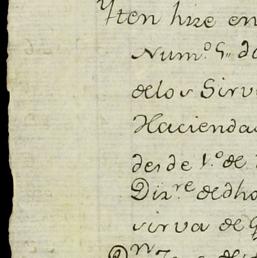 Yten hize en
Num.º 5.. d
delos Sirv
Hacienda
desde 1.º de
Diz.re de dho
sirva de